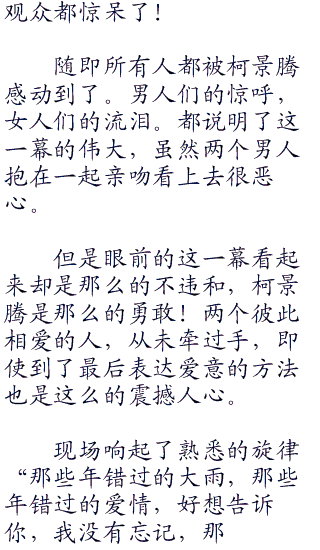 观众都惊呆了！
随即所有人都被柯景腾
感动到了。男人们的惊呼，
女人们的流泪。都说明了这
一幕的伟大，虽然两个男人
抱在一起亲吻看上去很恶
心。
但是眼前的这一幕看起
来却是那么的不违和，柯景
腾是那么的勇敢！两个彼此
相爱的人，从未牵过手，即
使到了最后表达爱意的方法
也是这么的震撼人心。
现场响起了熟悉的旋律
“那些年错过的大雨，那些
年错过的爱情，好想告诉
你，我没有忘记，那